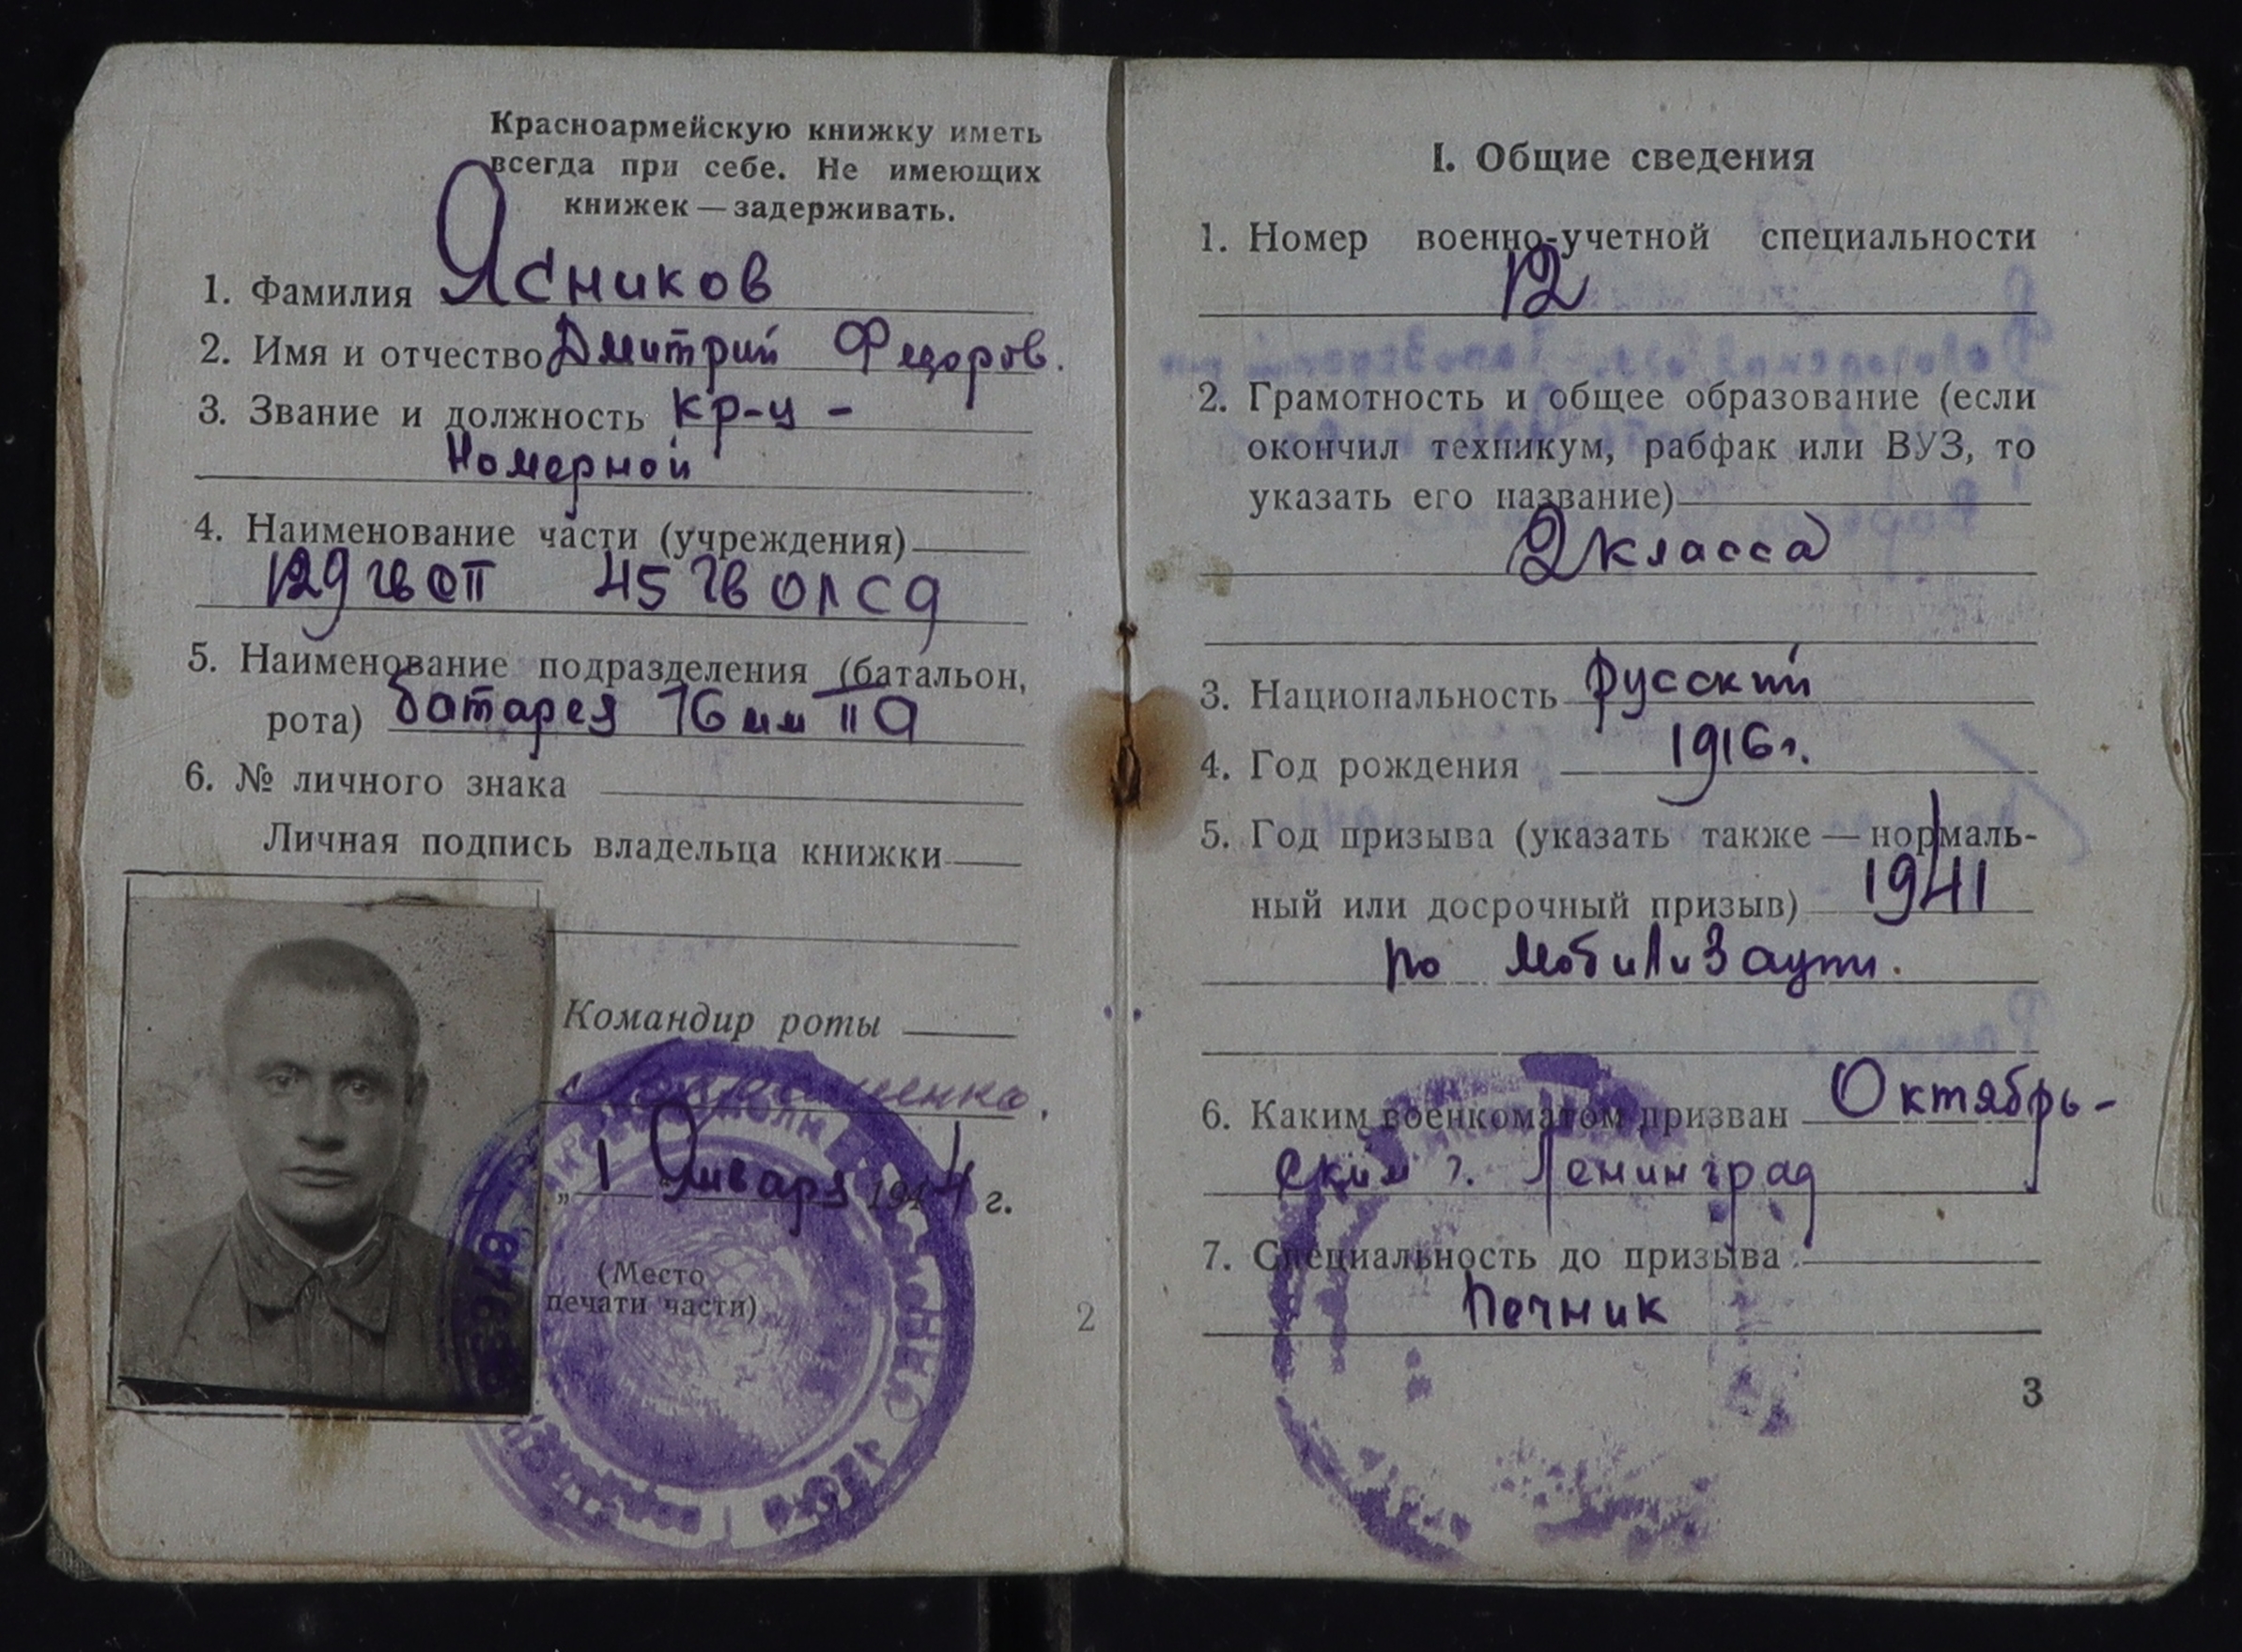 Красноармейскую книжку иметь
всегда при себе. Не имеющих
книжек — задерживать.
1. Фамилия Ясников
2. Имя и отчество Дмитрий Федоров.
3. Звание и должность кр-ц -
Номерной
4. Наименование части (учреждения)
129 гв сп 45 гв олсд
5. Наименование подразделения (батальон,
рота) батарея 76 мм па
6. № личного знака
Личная подпись владельца книжки
Командир роты
„ 1 Января 1944 г.
(Место
печати части)
2
I. Общие сведения
1. Номер военно-учетной специальности
12
2. Грамотность и общее образование (если
окончил техникум, рабфак или ВУЗ, то
указать его название)
2 класса
3. Национальность русский
4. Год рождения 1916 г.
5. Год призыва (указать также — нормаль-
ный или досрочный призыв) 1941
по мобилизации.
6. Каким военкоматом призван Октябрь-
ским г. Ленинград
7. Специальность до призыва
Печник
3